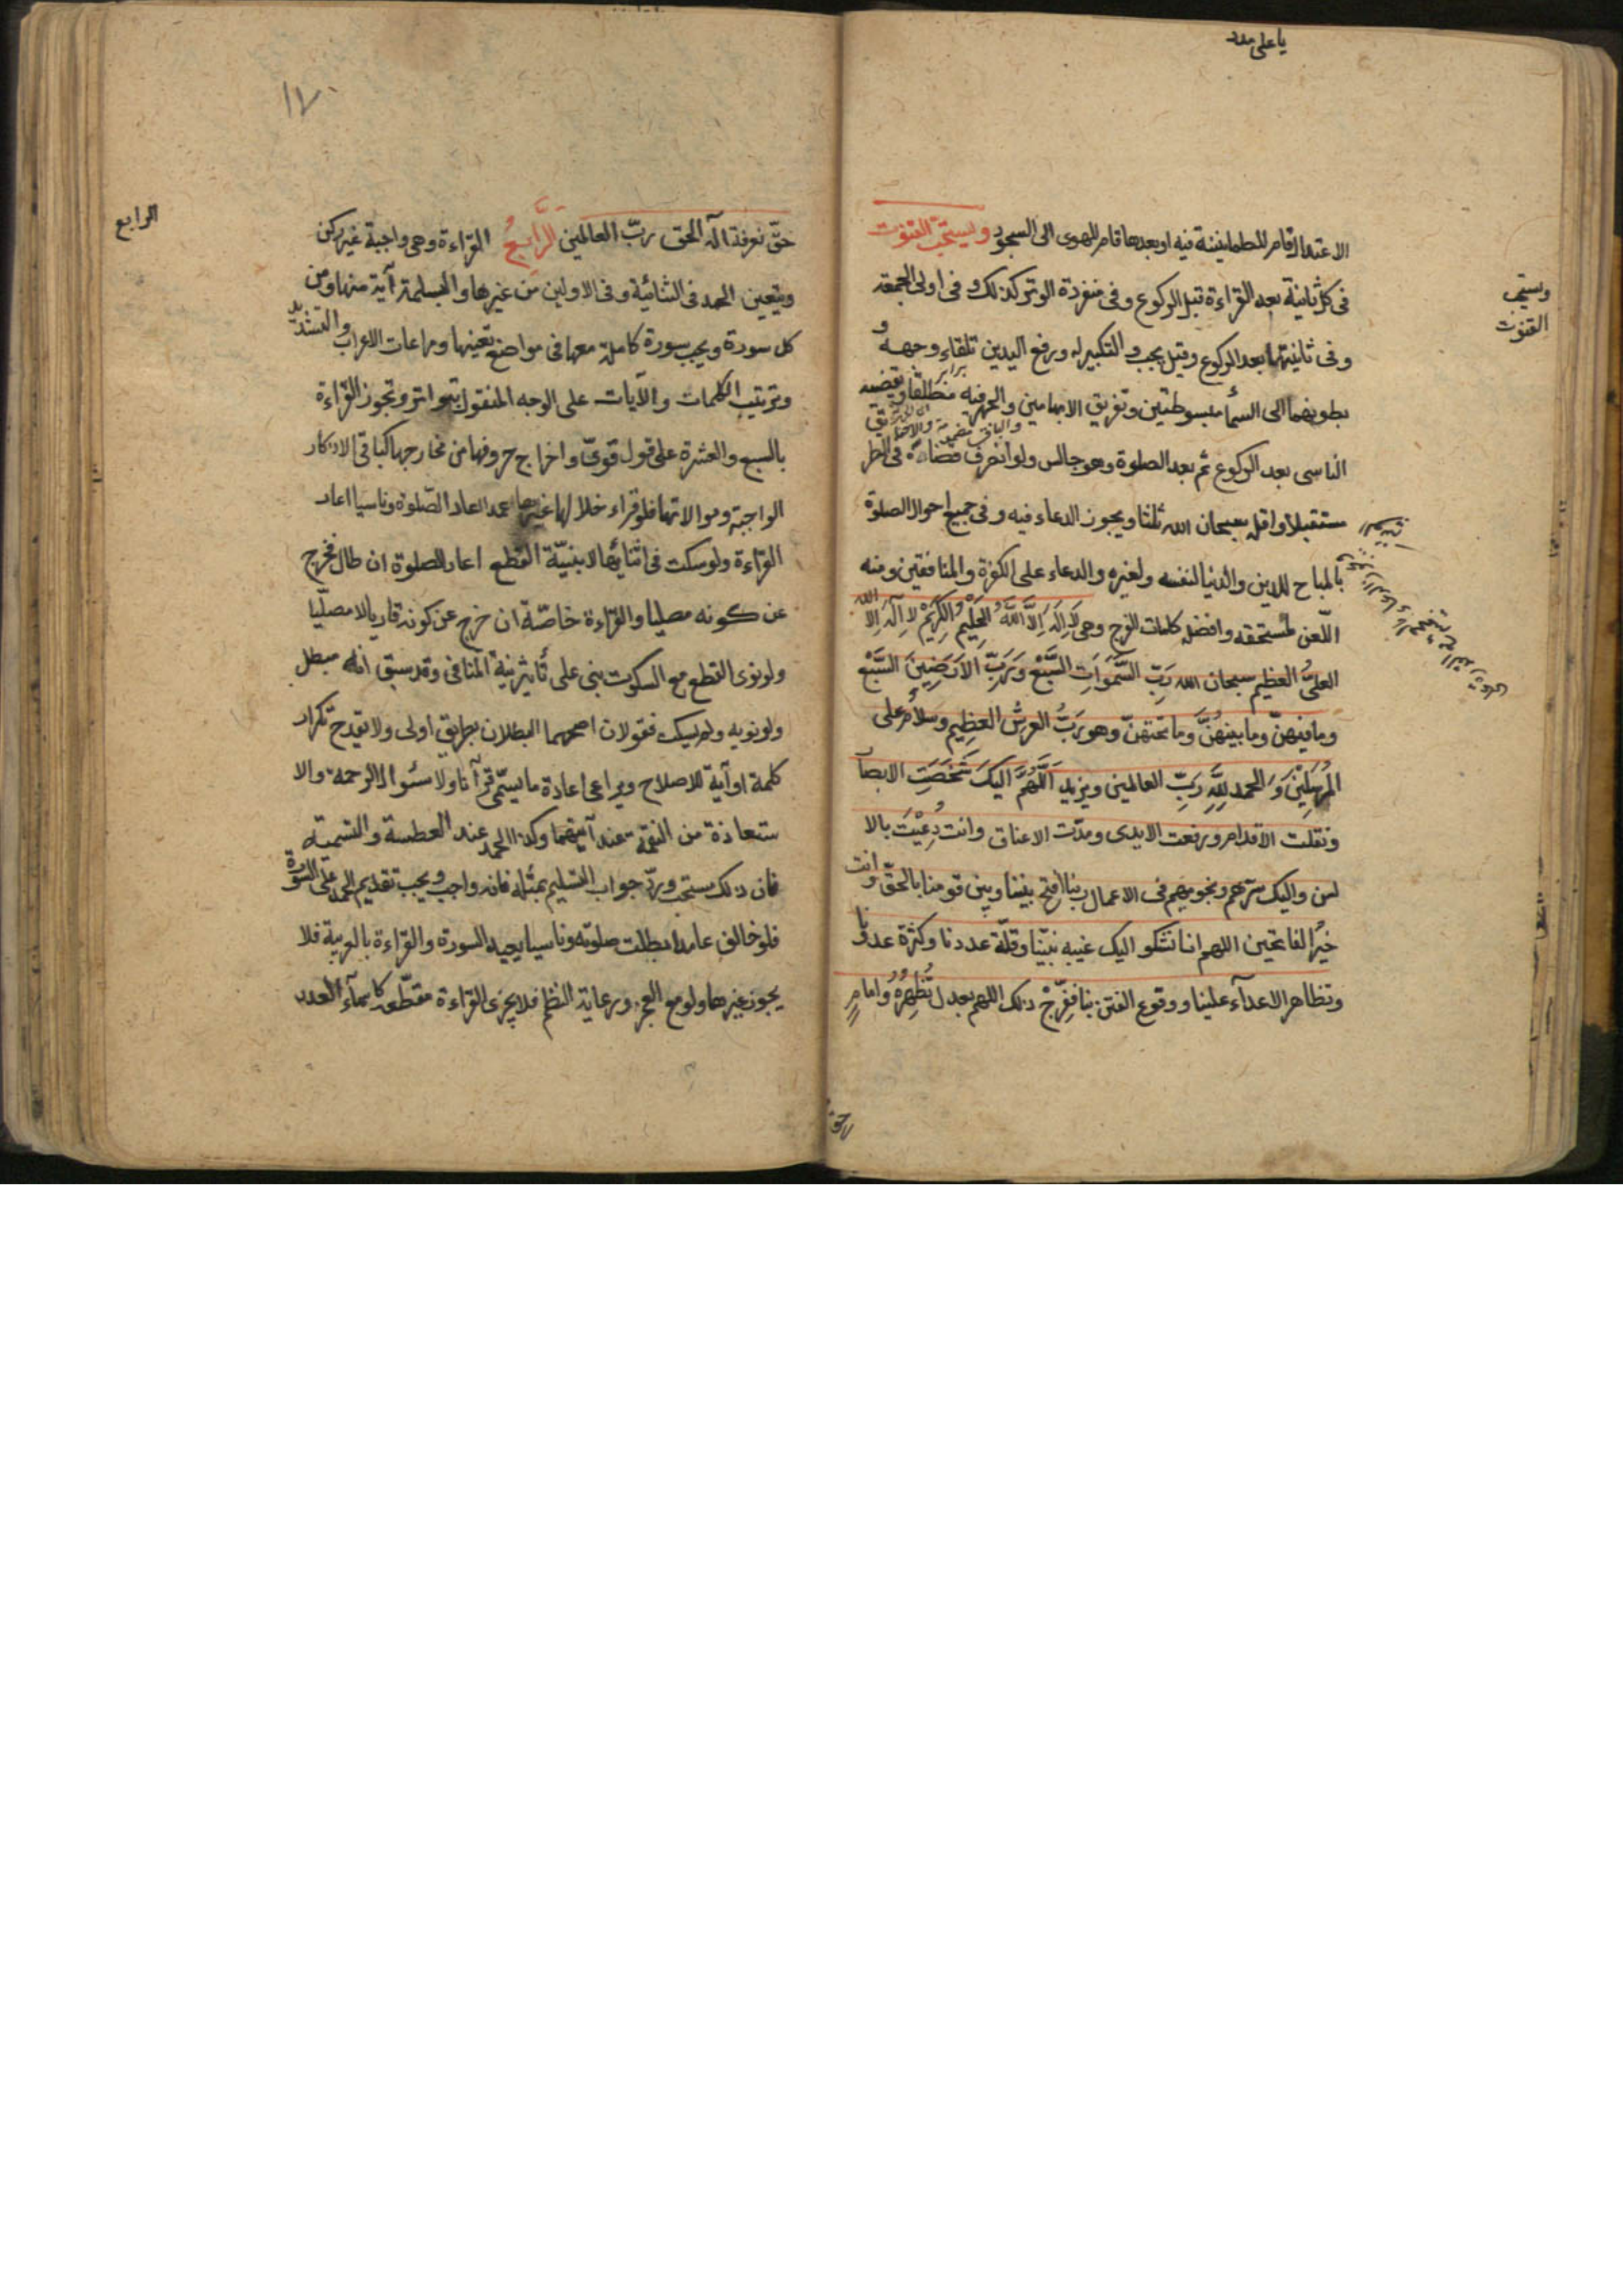 يا على مدد
الاعتدال قام للطمانينة فيه او بعدها قام للهوى الى السجود ويستحبّ القنوت
ويستحب
القنوت
فى كل ثانية بعد القراءة قبل الركوع وفى مفردة الوتر كذلك وفى اولى الجمعة
وفى ثانيتها بعد الركوع وقيل يجب والتكبير له ورفع اليدين تلقاء وجهه و
بطونهما الى السماء مبسوطتين وتفريق الابهامين والجهر فيه مطلقا ويقضيه
الناسى بعد الركوع ثم بعد الصلوة وهو جالس ولو انحرف قضاه فى الطريق
مستقبلا واقله سبحان الله ثلثا ويجوز الدعاء فيه وفى جميع احوال الصلوة
بالمباح للدين والدنيا لنفسه ولغيره والدعاء على الكفرة والمنافقين ومنه
اللّعن لمستحقه وافضله كلمات الفرج وهى لَا اِلَهَ اِلَّا اللَّهُ الْحَلِيْمُ الْكَرِيْمُ لا اله اِلا الله
العلىُّ العظيم سبحان الله رَبِّ السَّمَوَاتِ السَّبْعِ وَرَبِّ الاَرَضِينَ السَّبْع
وما فيهنّ وما بينهُنَّ وَما تحتهنّ وهو رَبُّ العرش العظيم وسلام على
المُرْسَلِيْنَ وَ الحمد لِلَّهِ رَبِّ العالمين ويزيد اَللَّهُمَّ اليكَ شَخَصَتِ الابصا
ونقلت الاقدام ورفعت الايدى ومدّت الاعناق وانت دُعِيْتَ بالا
لسن واليك سرّهم ونجويهم فى الاعمال ربنا افتح بيننا وبين قومنا بالحقّ وانت
خيرُ الفاتحين اللهم انا نشكو اليك غيبه نبيّنا وقلّة عددنا وكثرة عدوّنا
وتظاهر الاعدآء علينا ووقوع الفتن بنا فَفِّرجْ ذلك اللهم بعدل تُظْهِرُهُ وامام
حق
١٧
حقّ نعرفه اله الحق ربّ العالمين الرَّابِعُ القراءة وهى واجبة غير ركن
الرابع
ويتعين الحمد فى الثنائية وفى الاوليين من غيرها والبسملة آية منها ومن
كل سورة ويجب سورة كاملة معها فى مواضع تعينها ومراعات الاعراب والتشديد
وترتيب الكلمات والآيات على الوجه المنقول بتواتر وتجوز القراءة
بالسبع والعشرة على قول قوىّ واخراج حروفها من مخارجها كباقى الاذكار
الواجبة وموالاتها فلو قراء خلالها غيرها عمدا اعاد الصّلوة وناسيا اعاد
القراءة ولو سكت فى اثنائها لا بنيّة القطع اعاد الصلوة ان طال فخرج
عن كونه مصليا والقراءة خاصّة ان خرج عن كونه قاريا لا مصلّيا
ولو نوى القطع مع السكوت بنى على تأثير نية المنافى وقد سبق انه مبطل
ولو نويه ولم يسكت فقولان اصحهما البطلان بطريق اولى ولا يقدح تكرار
كلمة او آية للاصلاح ويراعى اعادة ما يسمّى قرآنا ولا سئوال الرحمة والا
ستعاذة من النقمة عند آيتهما وكذا الحمد عند العطسة والتسمية
فان ذلك مستحب وردّ جواب التسليم بمثله فانه واجب ويجب تقديم الحمد على السورة
فلو خالف عامدا بطلت صلوته وناسيا يعيد السورة والقراءة بالعربية فلا
يجوز غيرها ولو مع العجز ورعاية النظم فلا يجزى القراءة مقطّعه كاسمآء العدد